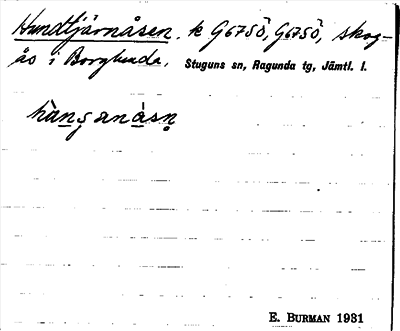 Hundtjärnåsen. k G6750, G6750, skog-
ås i Borglunda. Stuguns sn, Ragunda tg, Jämtl. l.
E. BURMAN 1931